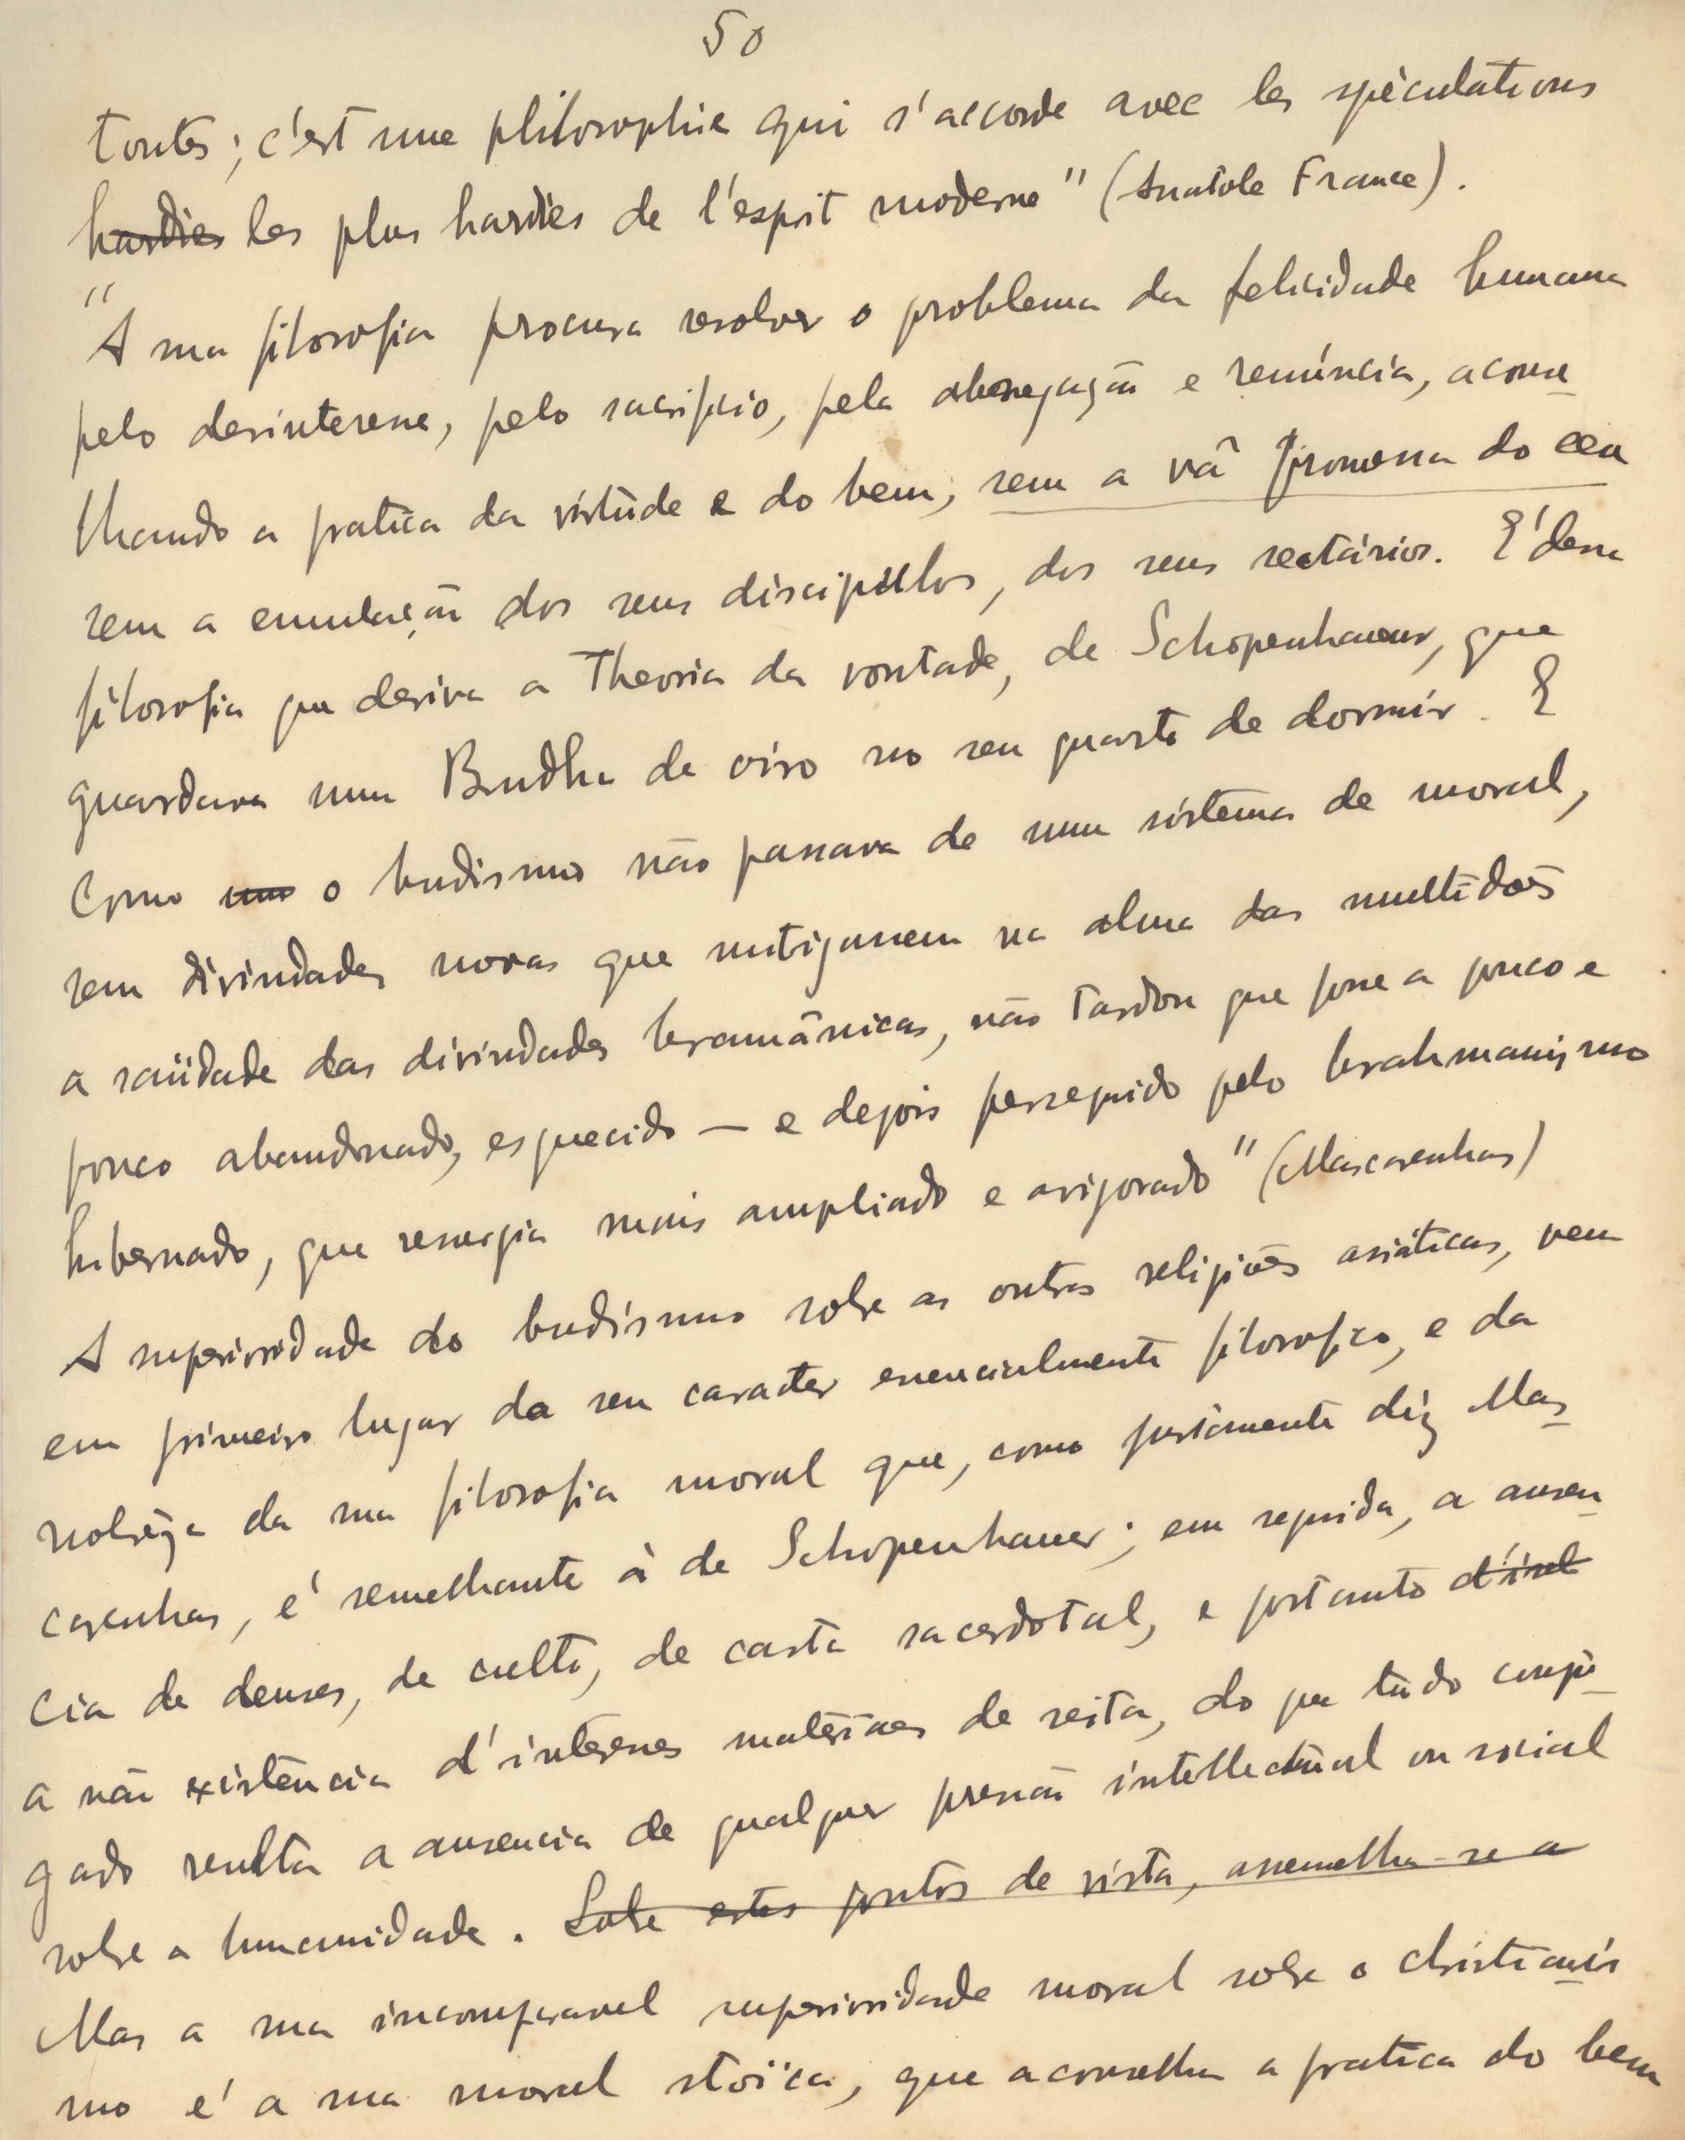 50
toutes; c'est une philosophie qui s'accorde avec les spéculations
hardies les plus hardies de l'esprit moderne" (Anatole France).
"A sua filosofia procura resolver o problema da felicidade humana
pelo desinteresse, pelo sacrificio, pela abenegação e renúncia, aconse-
lhando a pratica da virtude e do bem, sem a vã promessa do ceu
sem a emulação dos seus discipulos, dos seus sectários. E' dessa
filosofia que deriva a Theoria da vontade, de Schopenhauer, que
guardava um Budha de oiro no seu quarto de dormir. E
como o budismo não passava de um sistema de moral,
sem divindades novas que mitigassem na alma das multidões
a saüdade das divindades bramânicas, não tardou que fosse a pouco e
pouco abandonado, esquecido — e depois perseguido pelo brahmanismo
hibernado, que resurgia mais ampliado e avigorado" (Mascarenhas)
A superioridade do budismo sobre as outras religiões asiáticas, vem
em primeiro lugar do seu caracter essencialmente filosofico, e da
nobrêza da sua filosofia moral que, como justamente diz Mas-
carenhas, é semelhante à de Schopenhauer; em seguida, a ausen-
cia de deuses, de culto, de casta sacerdotal, e portanto
a não existência d'interesses materiaes de seita, do que tudo conju-
gado resulta a ausencia de qualquer pressão intellectual ou social
sobre a humanidade. Sobre estes pontos de vista, assemelha-se a
Mas a sua incomparavel superioridade moral sobre o christianis-
mo é a sua moral stoïca, que aconselha a pratica do bem